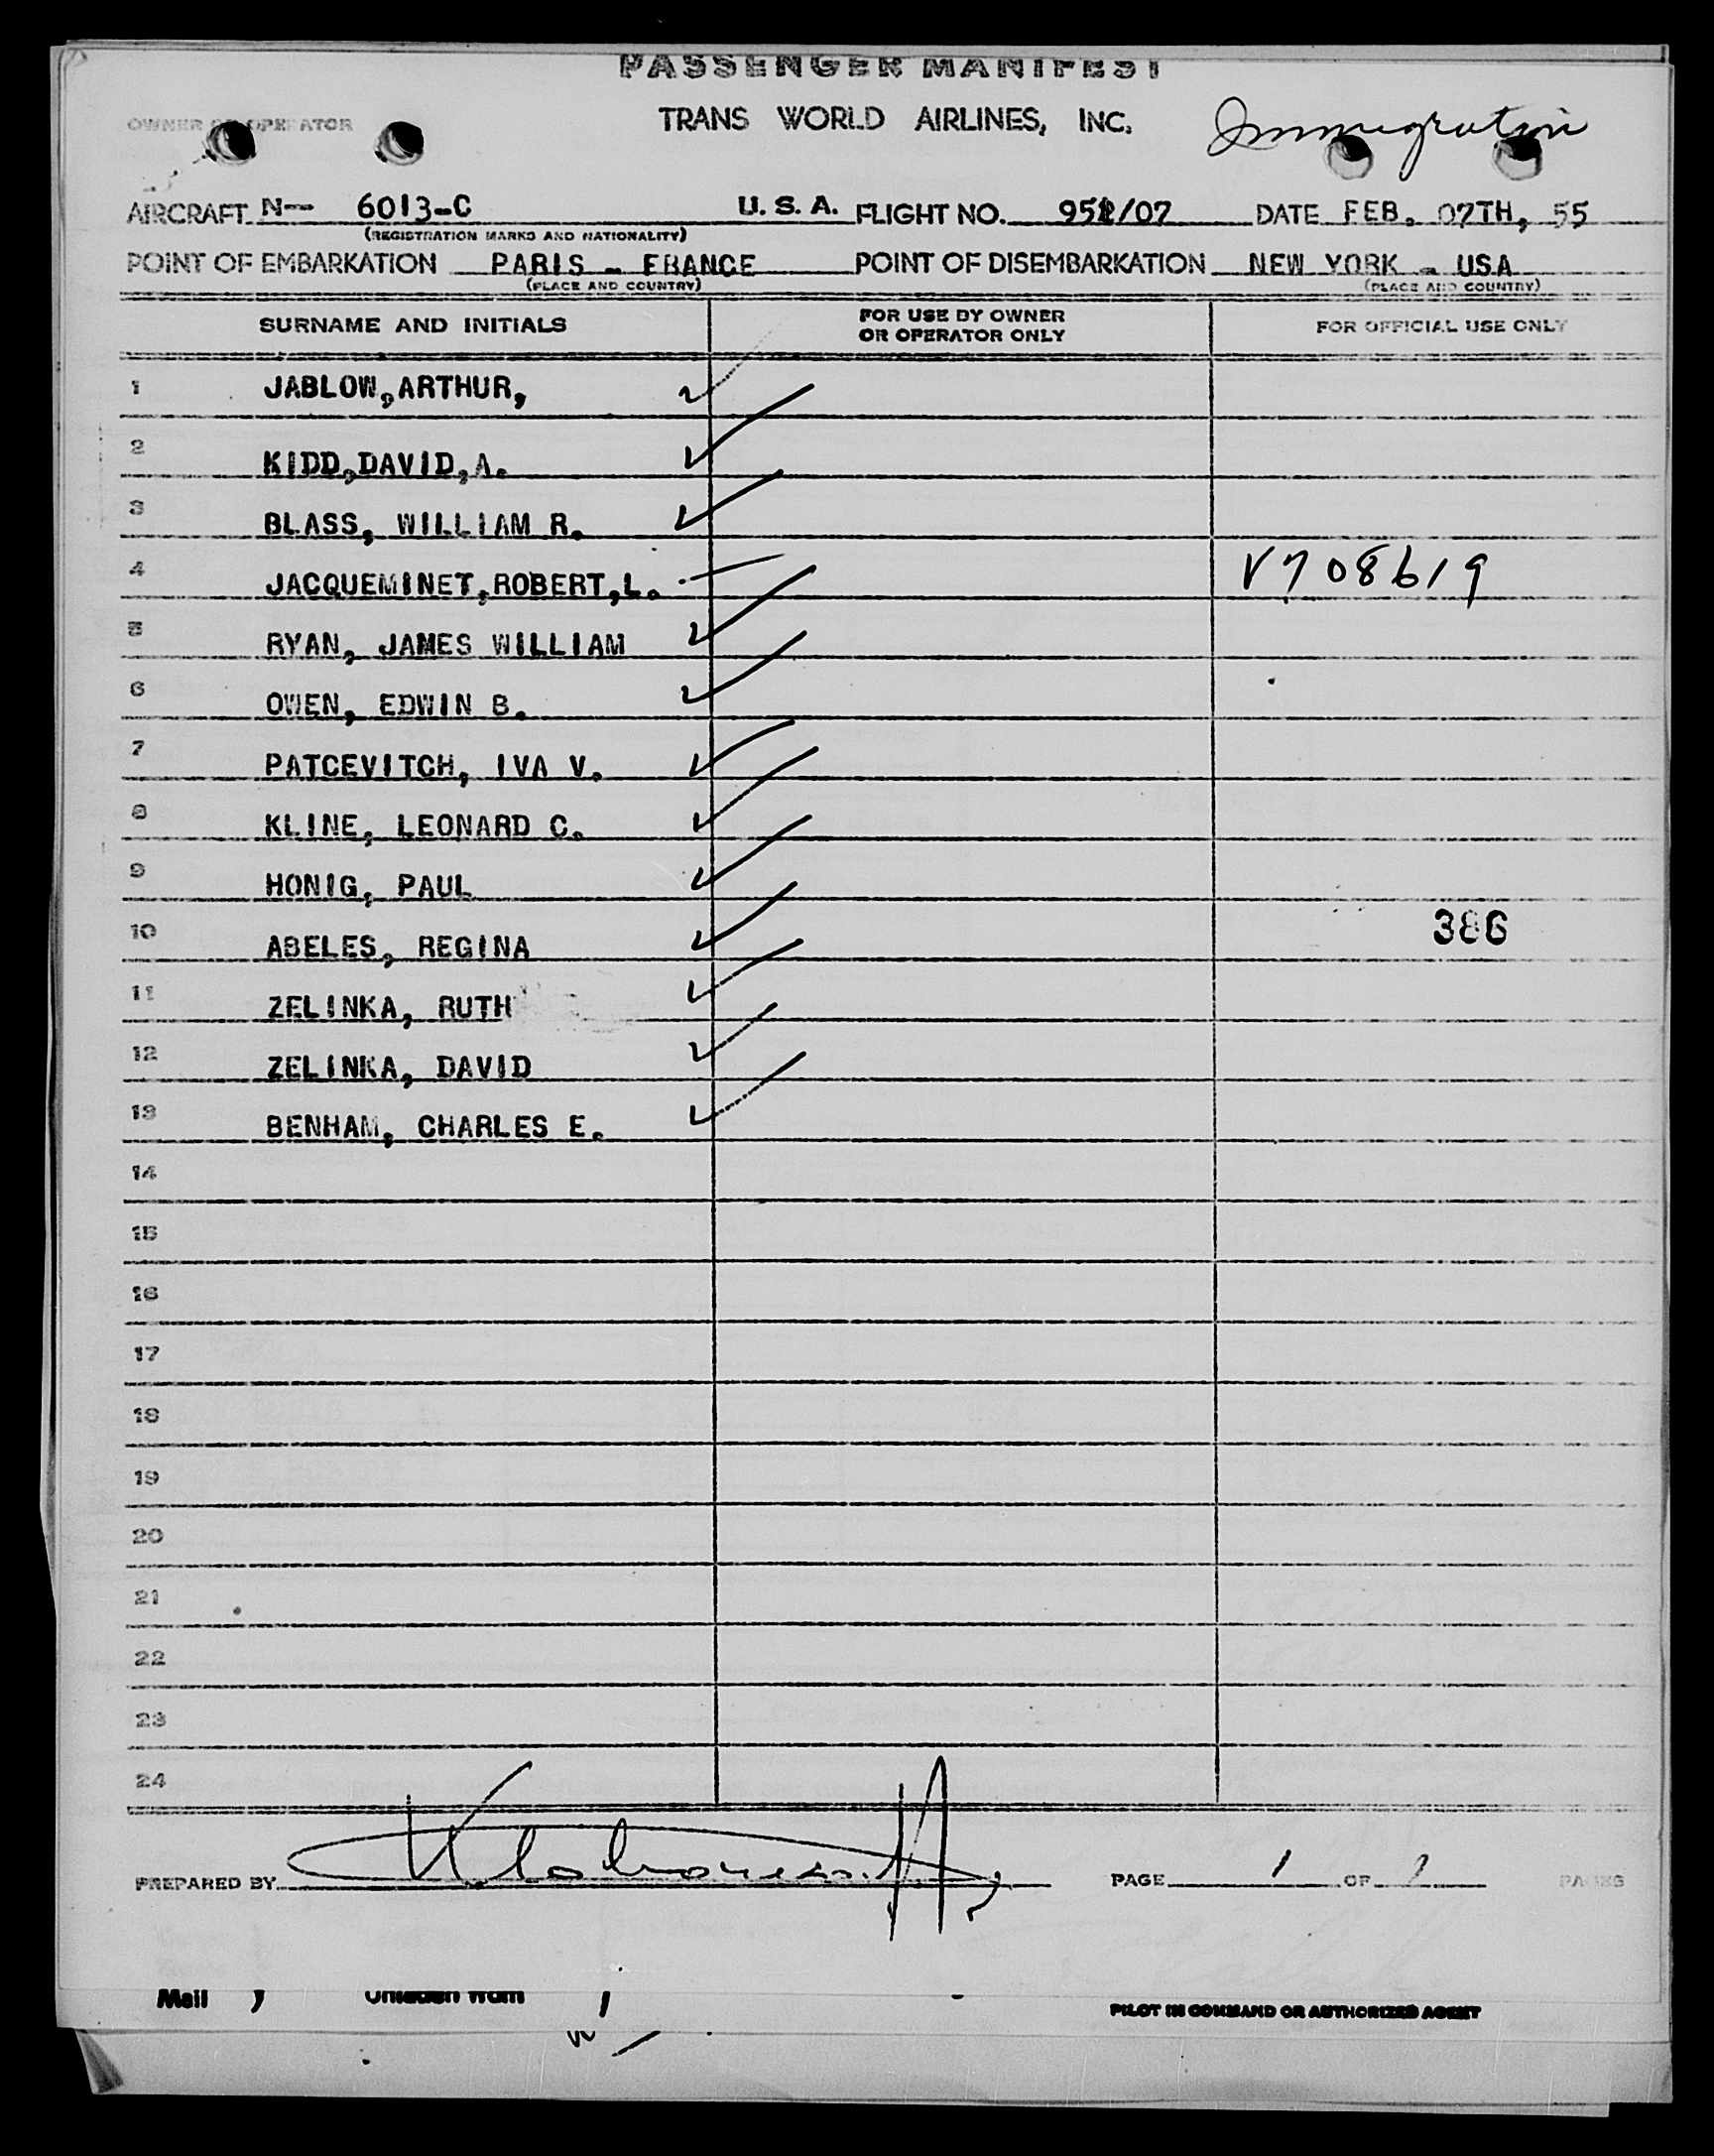 PASSENGER MANIFEST
OWNER OR OPERATOR TRANS WORLD AIRLINES, INC. Immigration
AIRCRAFT N-- 6013-C U. S. A. FLIGHT NO. 952/07 DATE FEB. 07TH, 55
(REGISTRATION MARKS AND NATIONALITY)
POINT OF EMBARKATION PARIS - FRANCE POINT OF DISEMBARKATION NEW YORK - USA
(PLACE AND COUNTRY) (PLACE AND COUNTRY)
SURNAME AND INITIALS FOR USE BY OWNER OR OPERATOR ONLY FOR OFFICIAL USE ONLY
1 JABLOW,ARTHUR,
2 KIDD,DAVID,A.
3 BLASS, WILLIAM R.
4 JACQUEMINET,ROBERT,L. V708619
5 RYAN, JAMES WILLIAM
6 OWEN, EDWIN B.
7 PATCEVITCH, IVA V.
8 KLINE, LEONARD C.
9 HONIG, PAUL
10 ABELES, REGINA 386
11 ZELINKA, RUTH
12 ZELINKA, DAVID
13 BENHAM, CHARLES E.
14
15
16
17
18
19
20
21
22
23
24
PREPARED BY PAGE 1 OF PAGES
Mail
PILOT IN COMMAND OR AUTHORIZED AGENT